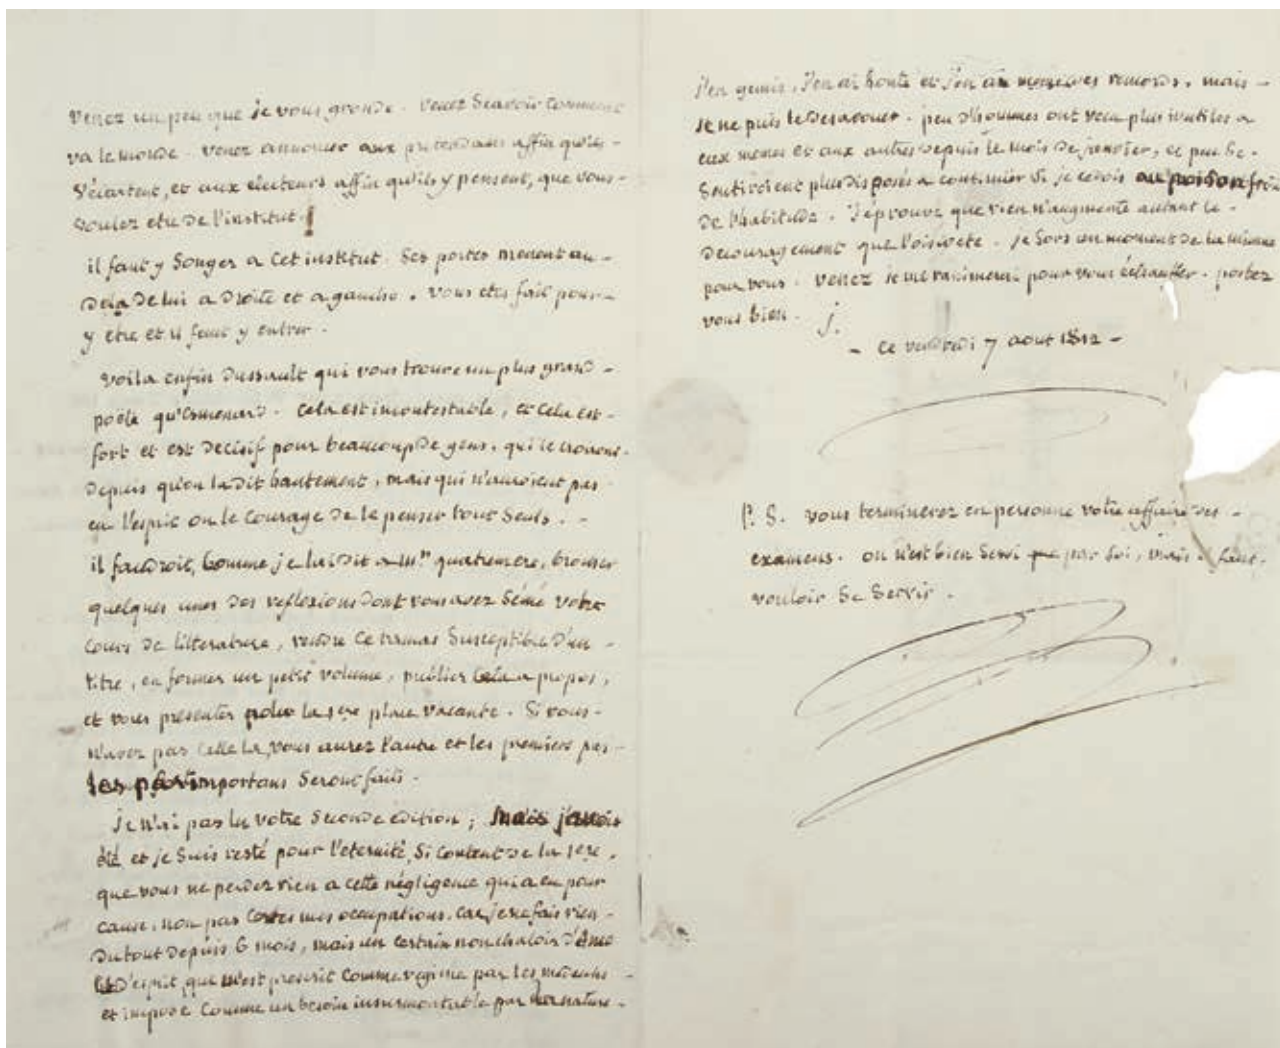 Venez un peu que je vous gronde. Venez Scavoir Comment
va le monde. Venez annoncer aux pretendans affin qu'ils -
S'écartent, et aux electeurs affin qu'ils y pensent, que vous -
voulez etre de l'institut !
il faut y Songer a Cet institut. Ses portes menent au -
dela de lui a droite et a gauche. Vous etes fait pour -
y etre et il faut y entrer.
Voila enfin dussault qui vous trouve un plus grand -
poëte qu'esmenard. Cela est incontestable, et Cela est -
fort et est decisif pour beaucoup de gens, qui le croiront
depuis qu'on la dit hautement, mais qui n'auroient pas
eu l'esprit ou le Courage de le penser tout Seuls. -
il faudroit, Comme je lai dit a Mr. quatremere,
quelques unes des reflexions dont vous avez Semé votre
Cours de litterature, rendre Ce ramas Susceptible d'un -
titre, en former un petit volume, publier Cela a propos,
et vous presenter pour la 1ere place vacante. Si vous -
n'avez pas Celle la, vous aurez l'autre et les premiers pas -
les plus importans Seront faits.
je n'ai pas lu votre Seconde édition ; Mais j'avois
été et je Suis resté pour l'eternité, Si Content de la 1ere.
que vous ne perdez rien a cette négligence qui a eu pour
cause, non pas Certes mes occupations, Car je ne fais rien -
du tout depuis 6 mois, mais un certain nonchaloir d'Ame
et D'esprit, que m'est prescrit Comme regime par les medecins -
et imposé Comme un besoin insurmontable par ma nature -
j'en gemis, j'en ai honte et j'en ai remords, mais -
je ne puis le desavouer. peu d'hommes ont vecu plus inutiles a
eux memes et aux autres depuis le mois de janvier, et peu Se -
Sentiroient plus disposés a continuer Si je cedois au poison
de l'habitude. J'éprouve que rien n'augmente autant le -
decouragement que l'oisiveté. je Sors un moment de la mienne
pour vous. Venez je me ranimerai pour vous échauffer. portez
vous bien. j.
- Ce vendredi 7 aout 1812 -
P. S. vous terminerez en personne votre affaire des -
examens. on n'est bien Servi que par Soi, mais faut.
vouloir Se Servir.